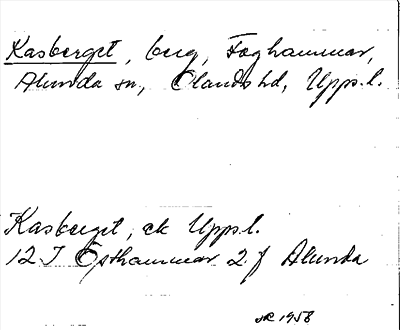 Kasberget, berg, Foghammar,
Alunda sn, Olands hd, Uppl.
Kasberget, ek Uppl.
12 I Östhammar 2 f Alunda
1958